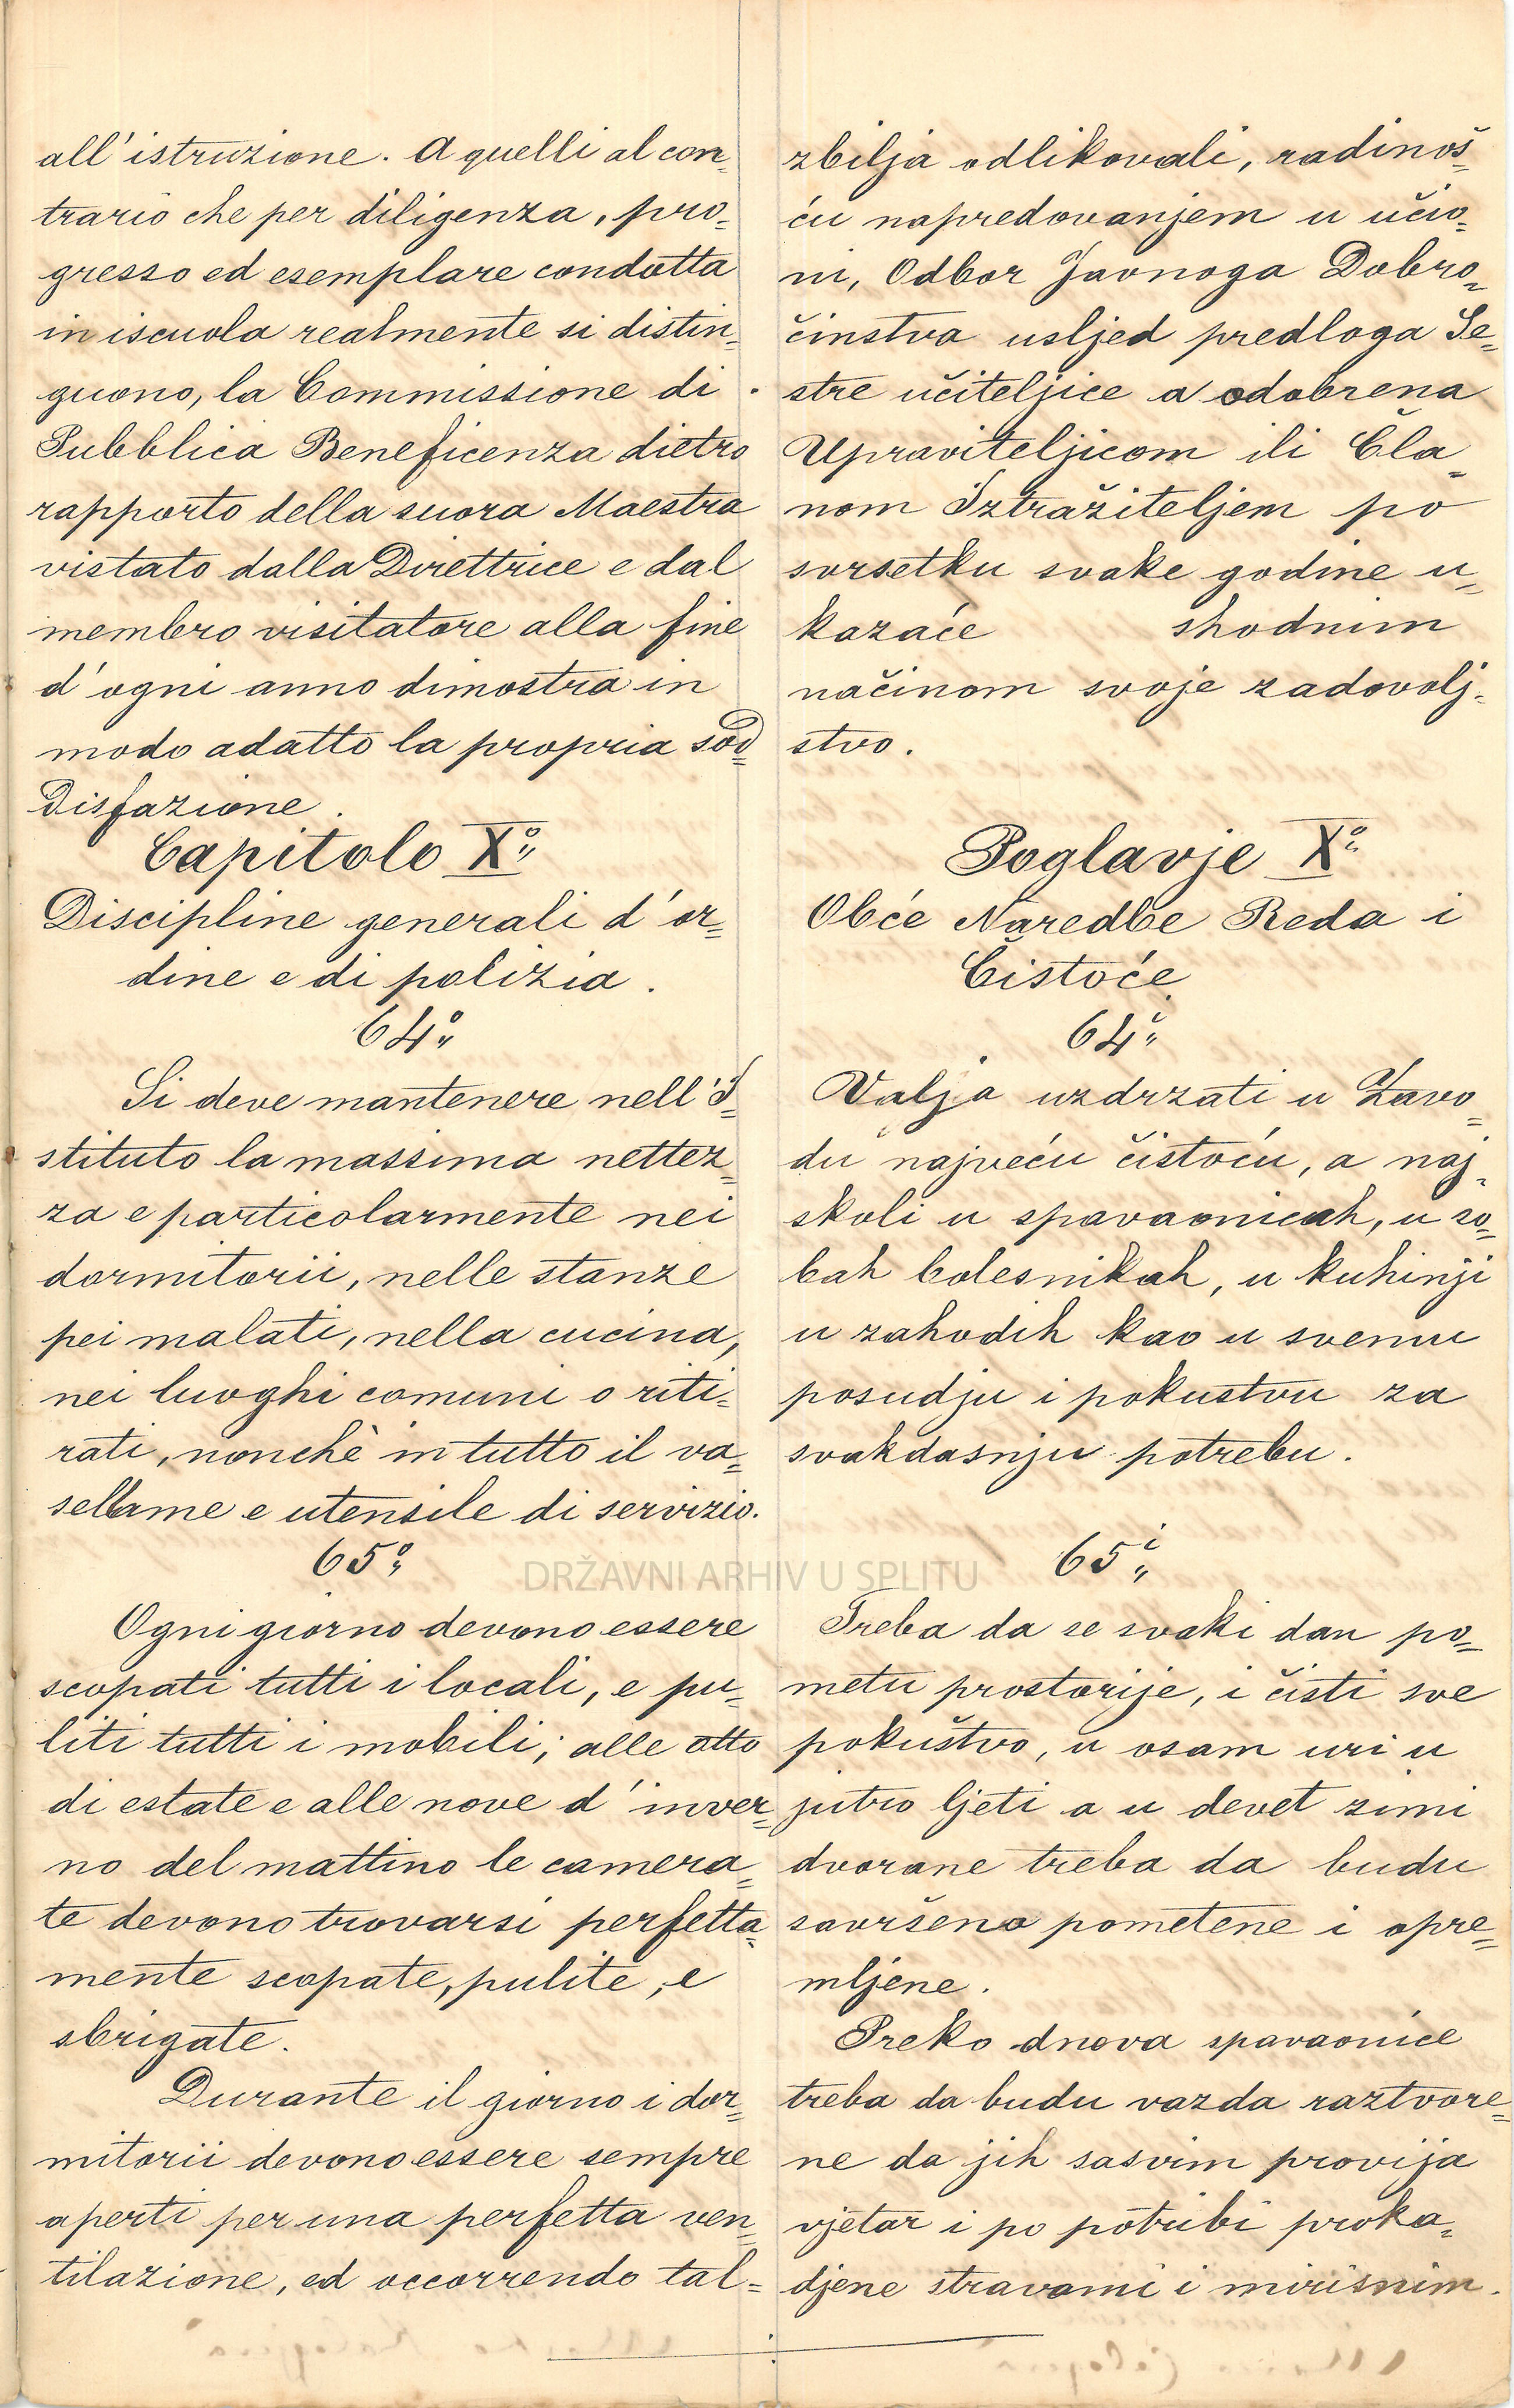 all'istruzione. A quelli al con=
trario che per diligenza, pro=
gresso ed esemplare condotta
in iscuola realmente si distin=
guono, la Commissione di
Pubblica Beneficenza dietro
rapporto della suora Maestra
vistato dalla Direttrice e dal
membro visitatore alla fine
d'ogni anno dimostra in
modo adatto la propria sod=
disfazione.
Capitolo X°
Discipline generali d'or=
dine e di polizia.
64°
Si deve mantenere nell'I=
stituto la massima nettez=
za e particolarmente nei
dormitorii, nelle stanze
pei malati, nella cucina,
nei luoghi comuni o riti=
rati, nonchè in tutto il va=
sellame e utensile di servizio.
65°
Ogni giorno devono essere
scopati tutti i locali, e pu=
liti tutti i mobili; alle otto
di estate e alle nove d'inver=
no del mattino le camera=
te devono trovarsi perfetta=
mente scopate, pulite, e
sbrigate.
Durante il giorno i dor=
mitorii devono essere sempre
aperti per una perfetta ven=
tilazione, ed occorrendo tal=
zbilja odlikovali, radinoš=
ću napredovanjem u učio=
ni, Odbor Javnoga Dobro=
činstva usljed predloga Se=
stre učiteljice a odobrena
Upraviteljicom ili Čla=
nom Iztražiteljem po
svrsetku svake godine u=
kazaće shodnim
načinom svoje zadovolj=
stvo.
Poglavje X°
Obće Naredbe Reda i
Čistoće
64°
Valja uzdrzati u Zavo=
du najveću čistoću, a naj=
skoli u spavaonicah, u so=
bah bolesnikah, u kuhinji
u zahodih kao u svemu
posudju i pokustvu za
svakdasnju potrebu.
65i
Treba da se svaki dan po=
metu prostorije, i čisti sve
pokuštvo, u osam uri u
jutro ljeti a u devet zimi
dvorane treba da budu
savršeno pometene i opre=
mljene.
Preko dneva spavaonice
treba da budu vazda raztvore=
ne da jih sasvim provija
vjetar i po potribi proka=
djene stravami i mirisnim.
DRŽAVNI ARHIV U SPLITU